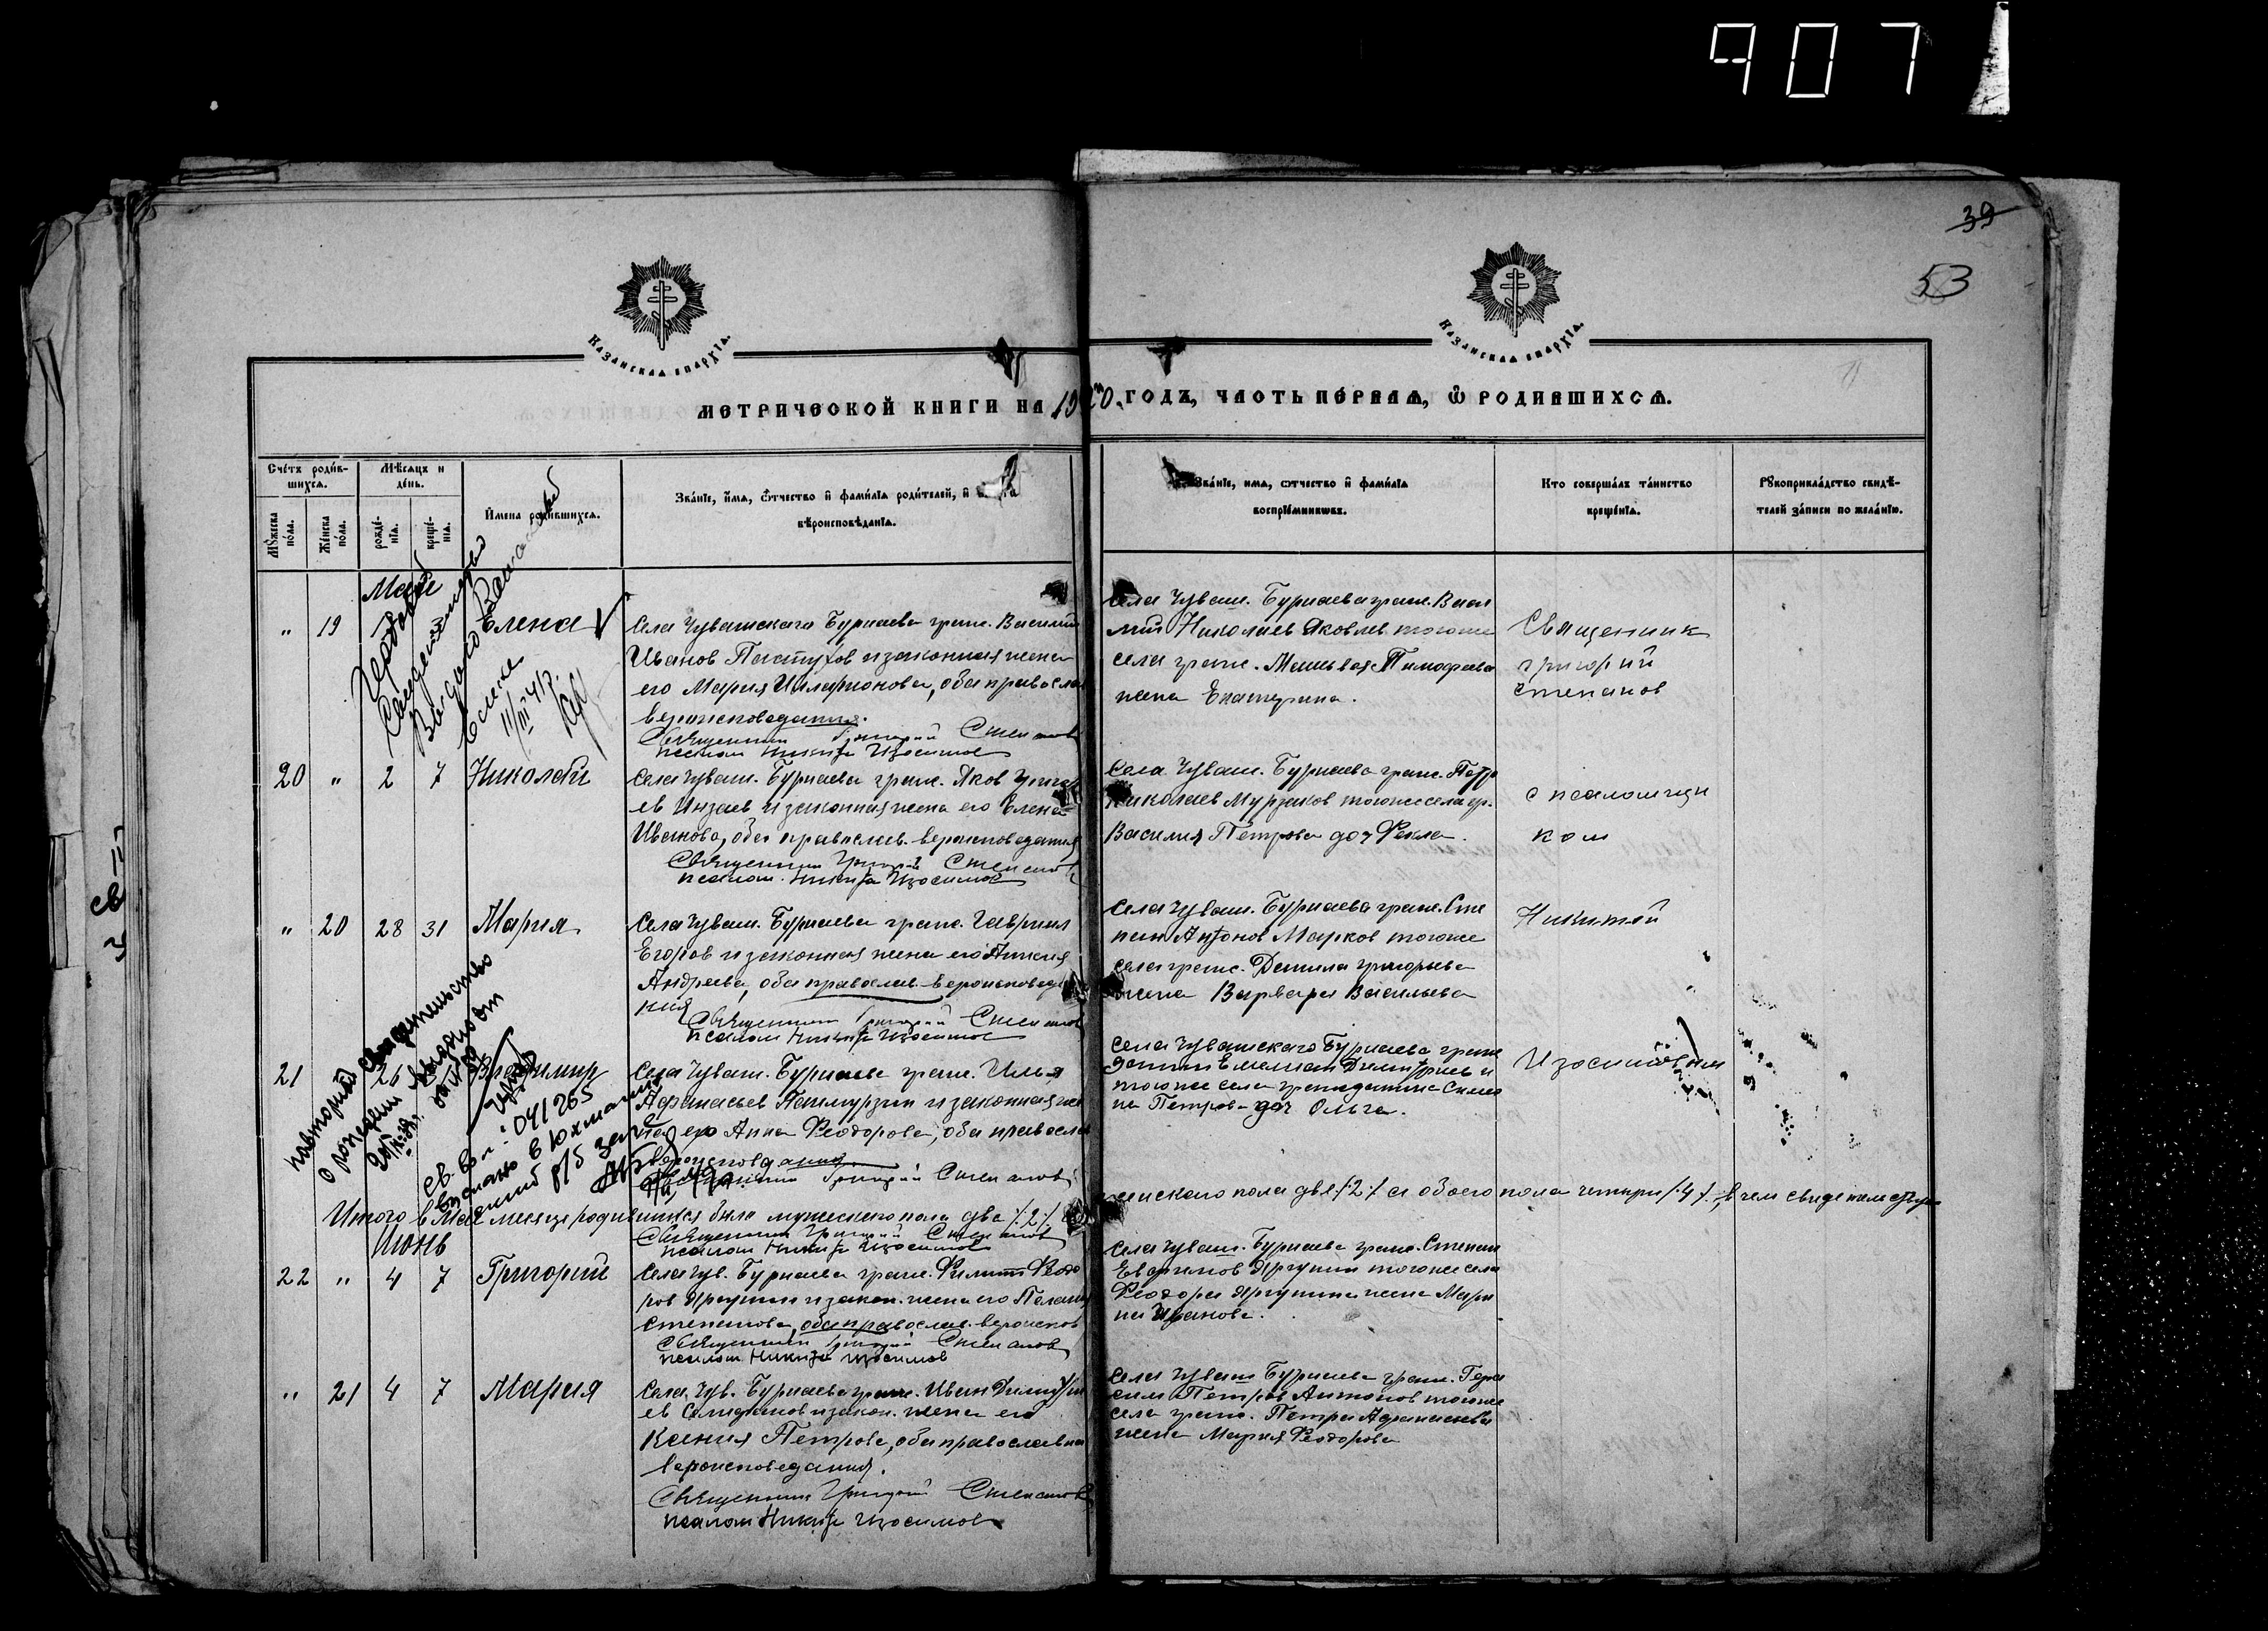 907
39
53
Казанская епархія.
Казанская епархія.
МЕТРИЧЕСКОЙ КНИГИ НА 1920 ГОДЪ, ЧАСТЬ ПЕРВАЯ, Ѡ РОДИВШИХСЯ.
Счетъ родив-
шихся.
Мужеска
пола.
Женска
пола.
Мѣсяцъ и
день.
рожде-
нія.
креще-
нія.
Имена родившихся.
Званіе, имя, отчество и фамилія родителей, и
вѣроисповѣданія.
Званіе, имя, отчество и фамилія
воспріемниковъ.
Кто совершалъ таинство
крещенія.
Рукоприкладство свидѣ-
телей записи по желанію.
Май
„ 19 Елена
Села Чувашского Бурнаева граж. Василий
Иванов Пастухов и законная жена
его Мария Иларионова, оба правосла
вероисповедания.
Священник Григорий Степанов
псалом Никита Изосимов
Села Чуваш. Бурнаева граж. Васи
лий Николаев Яковлев тогоже
села граж. Тимофеева
жена Екатерина.
Священник
Григорий
Степанов
Выдано
Елена
20 „ 2 7 Николай
Села Чуваш. Бурнаева граж. Яков Григор
ев Инзаев и законная жена его Елена
Иванова, оба православ. вероисповедания
Священник Григорий Степанов
псалом. Никита Изосимов
Села Чуваш. Бурнаева граж. Петр
Николаев Мурзаков тогоже села гр.
Василия Петрова доч Фекла.
с псаломщи
ком
„ 20 28 31 Мария
Села Чуваш. Бурнаева граж. Гавриил
Егоров и законная жена его
Андреева, оба православ. вероисповеда
ния
Священник Григорий Степанов
псалом Никита Изосимов
Села Чуваш. Бурнаева граж. Сте
пан Антонов Марков тогоже
села граж. Данила Григорьева
жена Варвара Васильева
Никитой
21 26 Владимир
Села Чуваш. Бурнаева граж. Илья
Афанасьев Паймурзин и законная же
на его Анна Феодорова, оба правосла
вероисповедания
Священник Григорий Степанов
Села Чувашского Бурнаева граж
данин Емелиан Димитриев и
тогоже села гражданина Симео
на Петрова доч Ольга.
Изосимовым
повторно свидетельство
о рождении
041265
Итого в Мае месяце родившихся было мужеского пола два /:2:/
женского пола две /:2:/ а обоего пола четыри /:4:/, в чем свидетельствуем
Священник Григорий Степанов
псалом Никита Изосимов
Июнь
22 „ 4 7 Григорий
Села Чув. Бурнаева граж. Филипп Феодо
ров Яргунин и закон. жена его
Степанова, оба православ. вероиспов
Священник Григорий Степанов
псалом Никита Изосимов
Села Чуваш. Бурнаева граж. Степан
Евфимов Яргунин тогоже села
Феодора Яргунина жена Мари
на Иванова.
„ 21 4 7 Мария
Села Чув. Бурнаева граж. Иван Димитри
ев и закон. жена его
Ксения Петрова, оба православна
вероисповедания.
Священник Григорий Степанов
псалом Никита Изосимов
Села Чуваш Бурнаева граж. Гера
сим Петров Антонов тогоже
села граж. Петра Афанасьева
жена Мария Феодорова